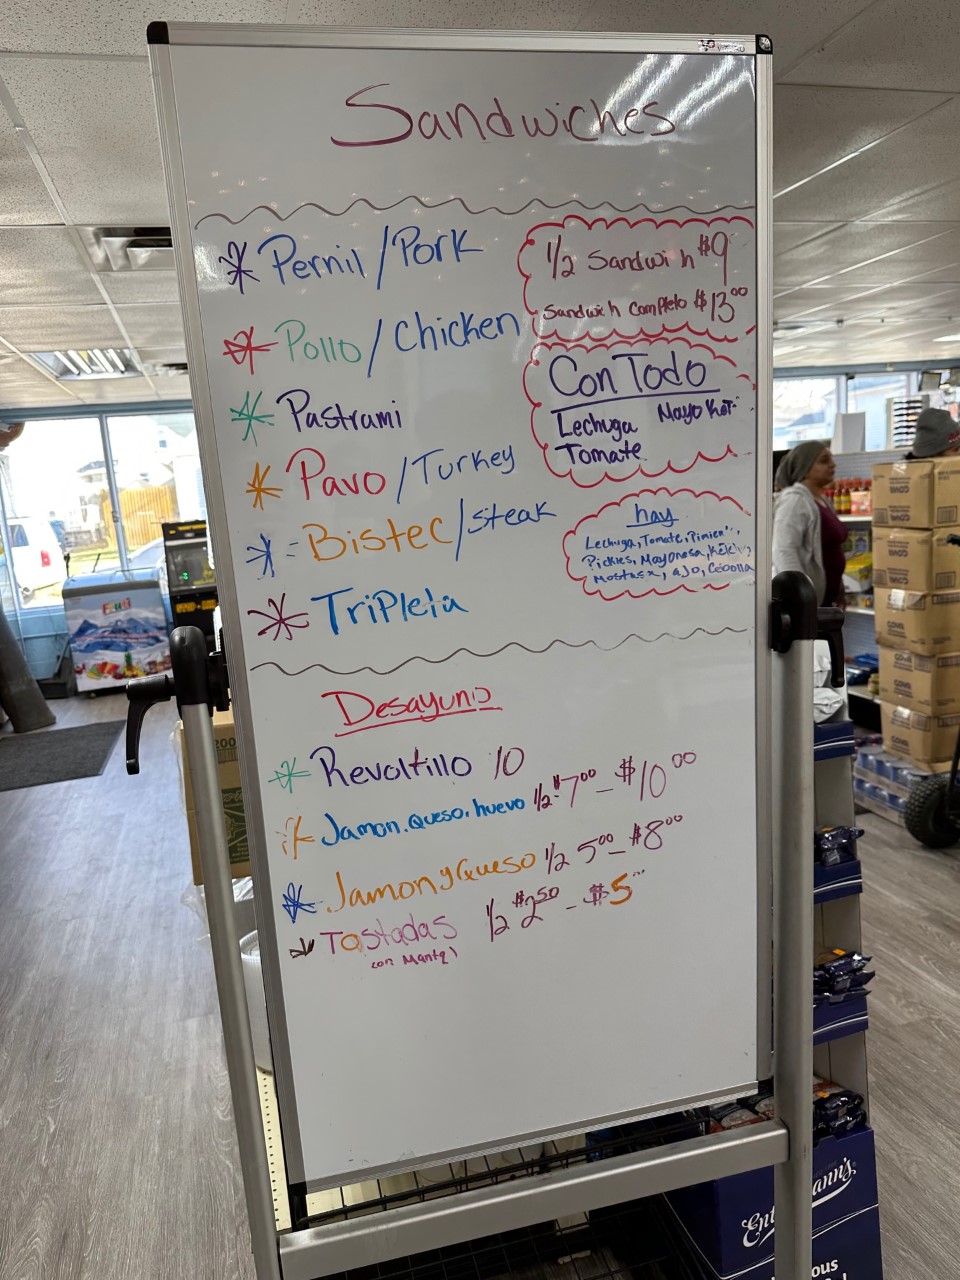 Sandwiches
* Pernil/Pork
* Pollo/Chicken
* Pastrami
* Pavo/Turkey
* Bistec/Steak
* Tripleta
1/2 Sandwich $9
Sandwich Completo $13⁰⁰
Con Todo
Lechuga Mayo Ket
Tomate
hay
Lechuga, Tomate, Pimien
Pickles, Mayonesa,
Mostaza, ajo, Cebolla
Desayuno
* Revoltillo 10
* Jamon. Queso. huevo 1/2 $7⁰⁰ - $10⁰⁰
* Jamon y Queso 1/2 5⁰⁰ - $8⁰⁰
* Tostadas 1/2 $2⁵⁰ - $5
con Mantq
200
GOYA
GOYA
GOYA
GOYA
GOYA